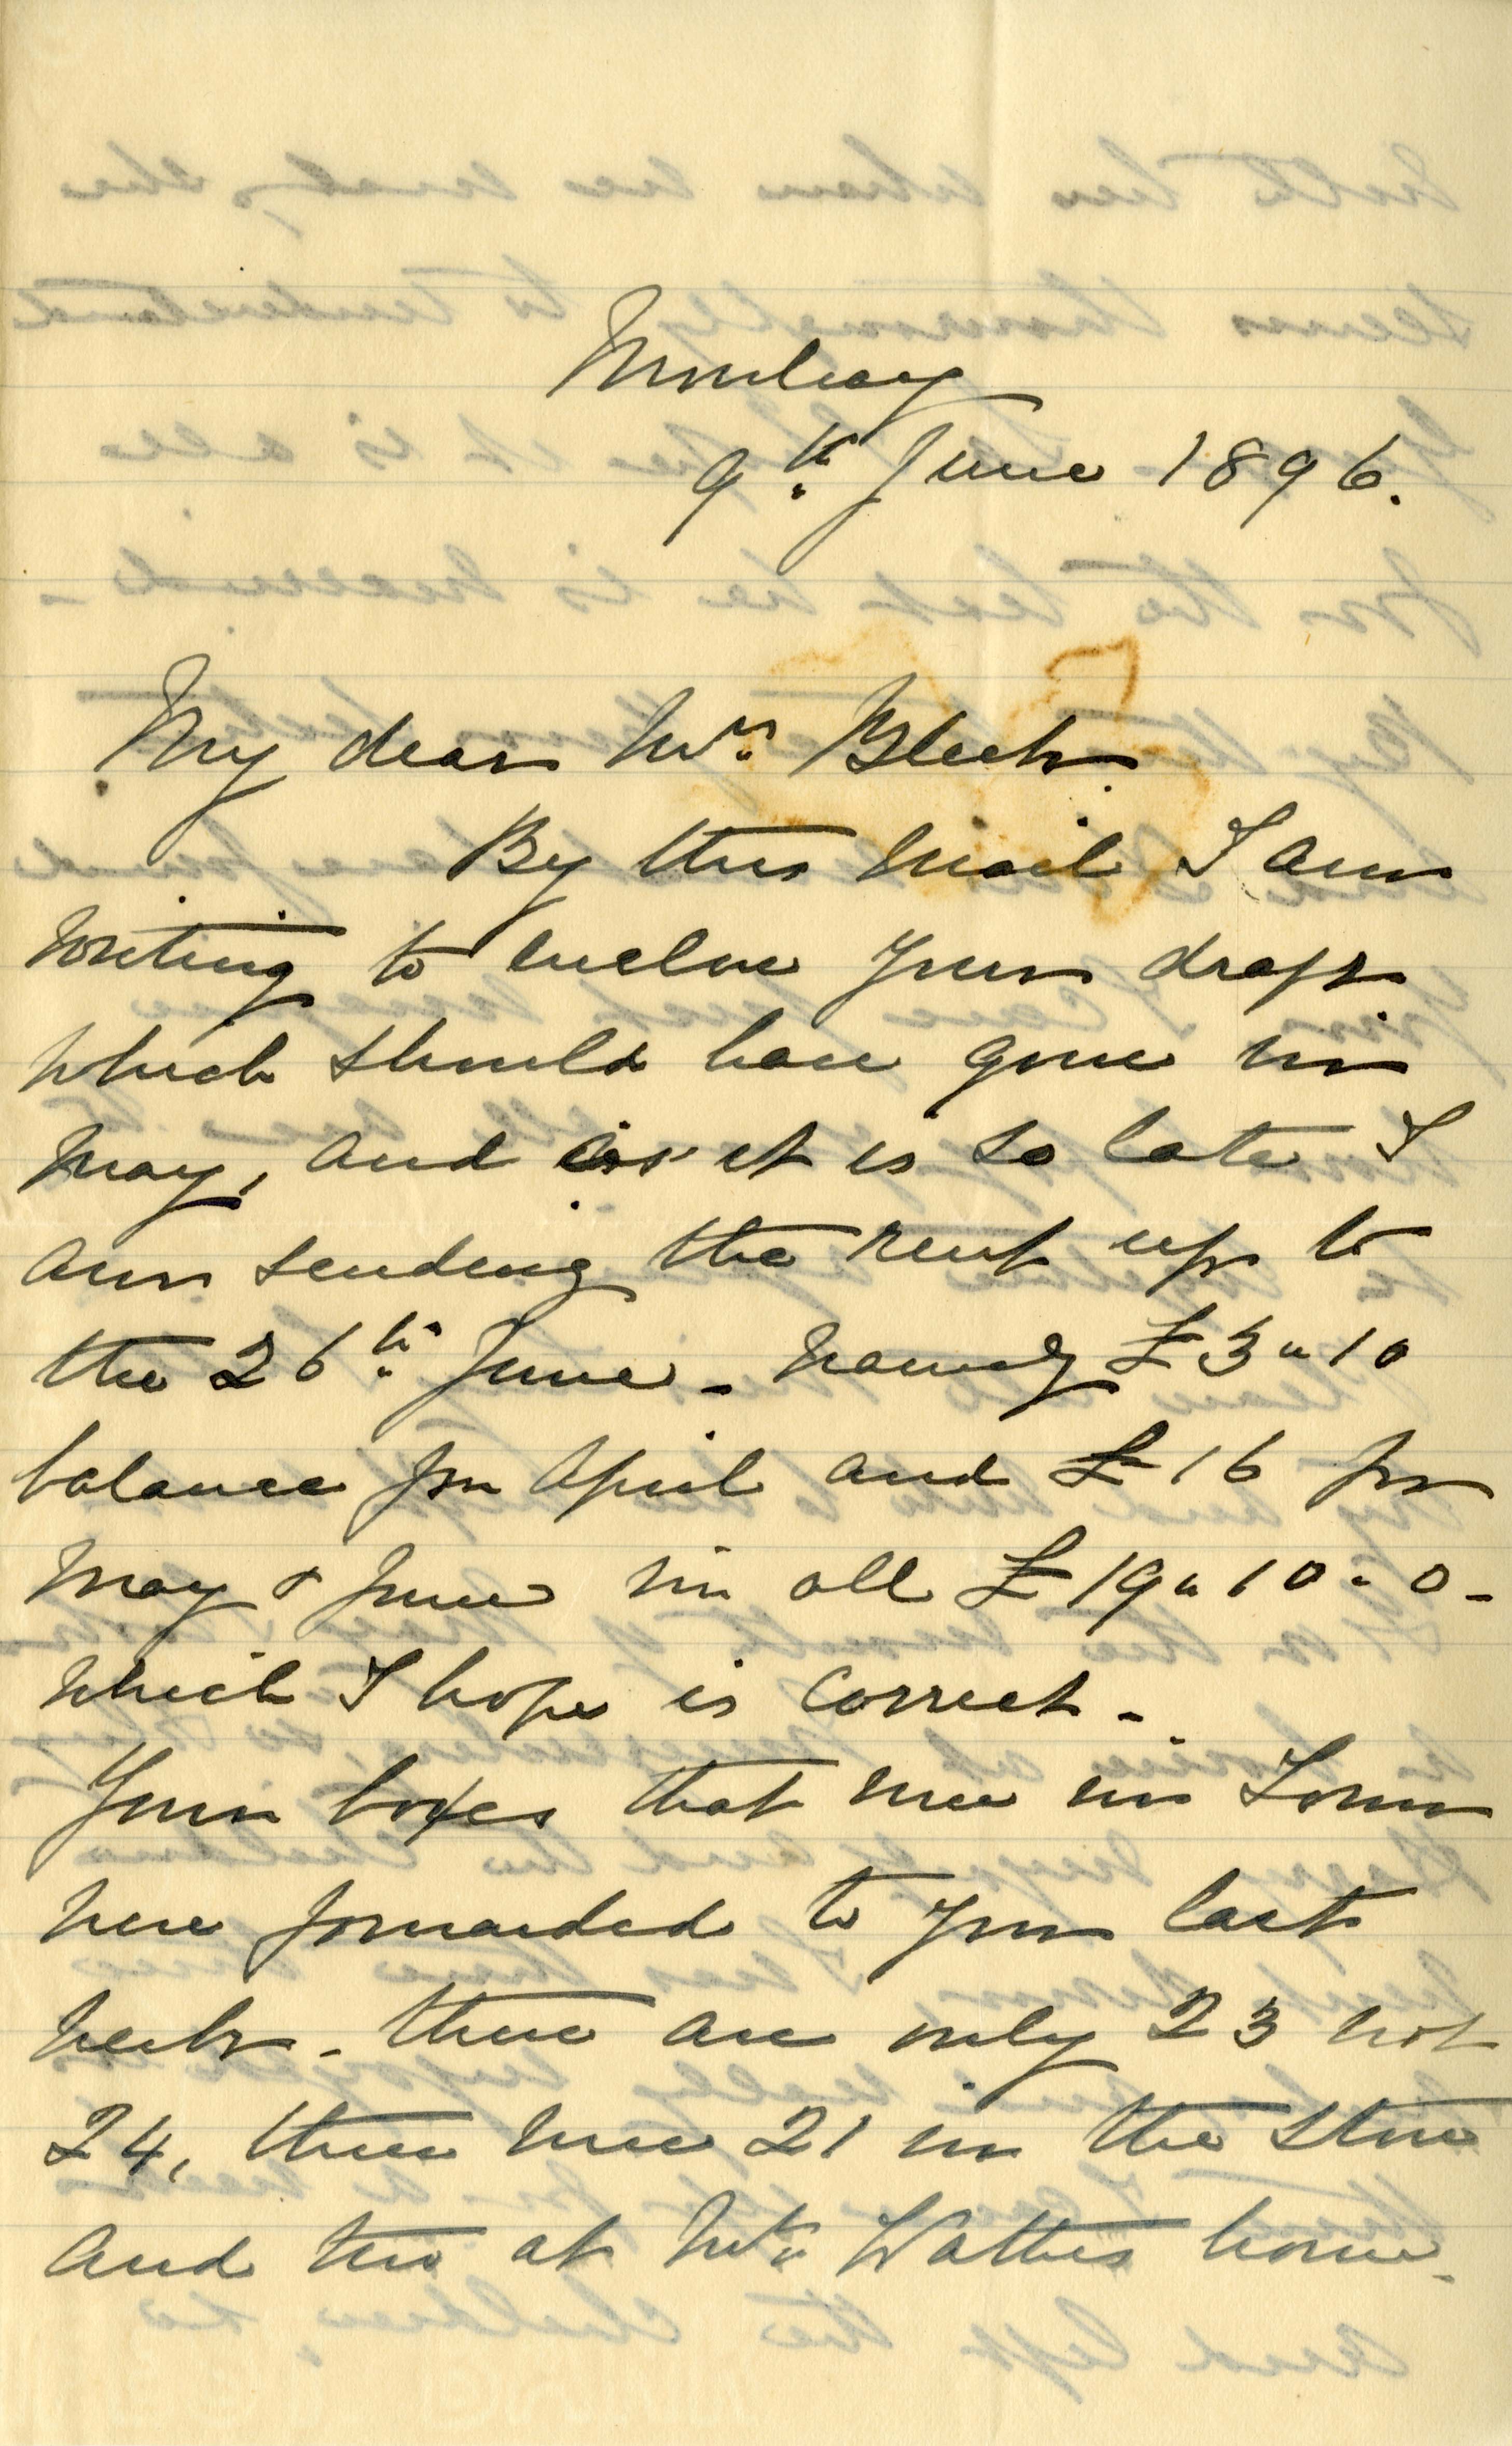 9th June 1896.
My dear Mrs. Bleek
By this mail I am
writing to enclose your draft
which should have gone in
May, and as it is so late I
am sending the rent up to
the 26th June - namely £3 " 10
balance for April and £16 for
May & June in all £19 " 10 " 0 -
which I hope is correct -
Your boxes that were in Town
were forwarded to you last
week - there are only 23 not
24, there were 21 in the store
and two at Mr. house -